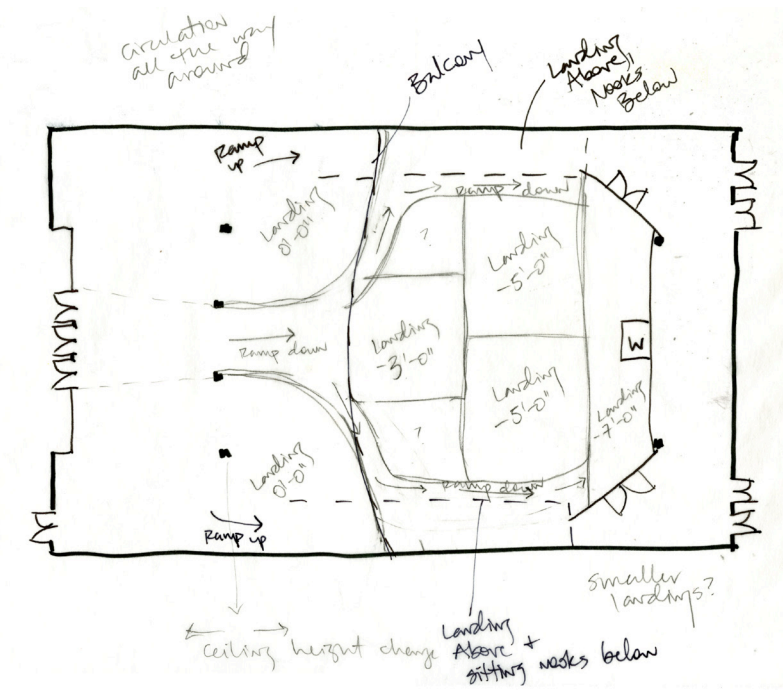 circulation
all the way
around
Balcony
Landing
Above,
Nooks
Below
Ramp
up
Landing
0'-0"
Ramp down
?
Landing
-5'-0"
Ramp down
Landing
-3'-0"
W
Landing
-5'-0"
Landing
-7'-0"
?
Landing
0'-0"
Ramp down
Ramp up
smaller
landings?
ceiling height change
Landing
Above +
sitting nooks below